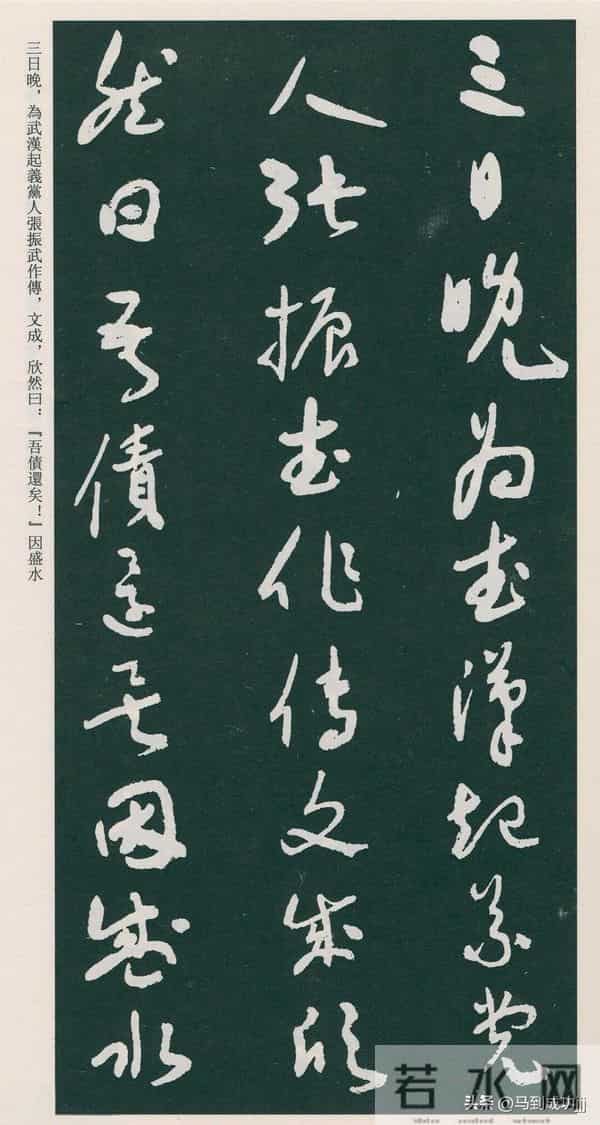 三日晚为武漢起義党
人張振武作傳文成欣
然曰吾債還矣因盛水
三日晚，為武漢起義黨人張振武作傳，文成，欣然曰：『吾債還矣！』因盛水
若水网
头条 @马到成功jj